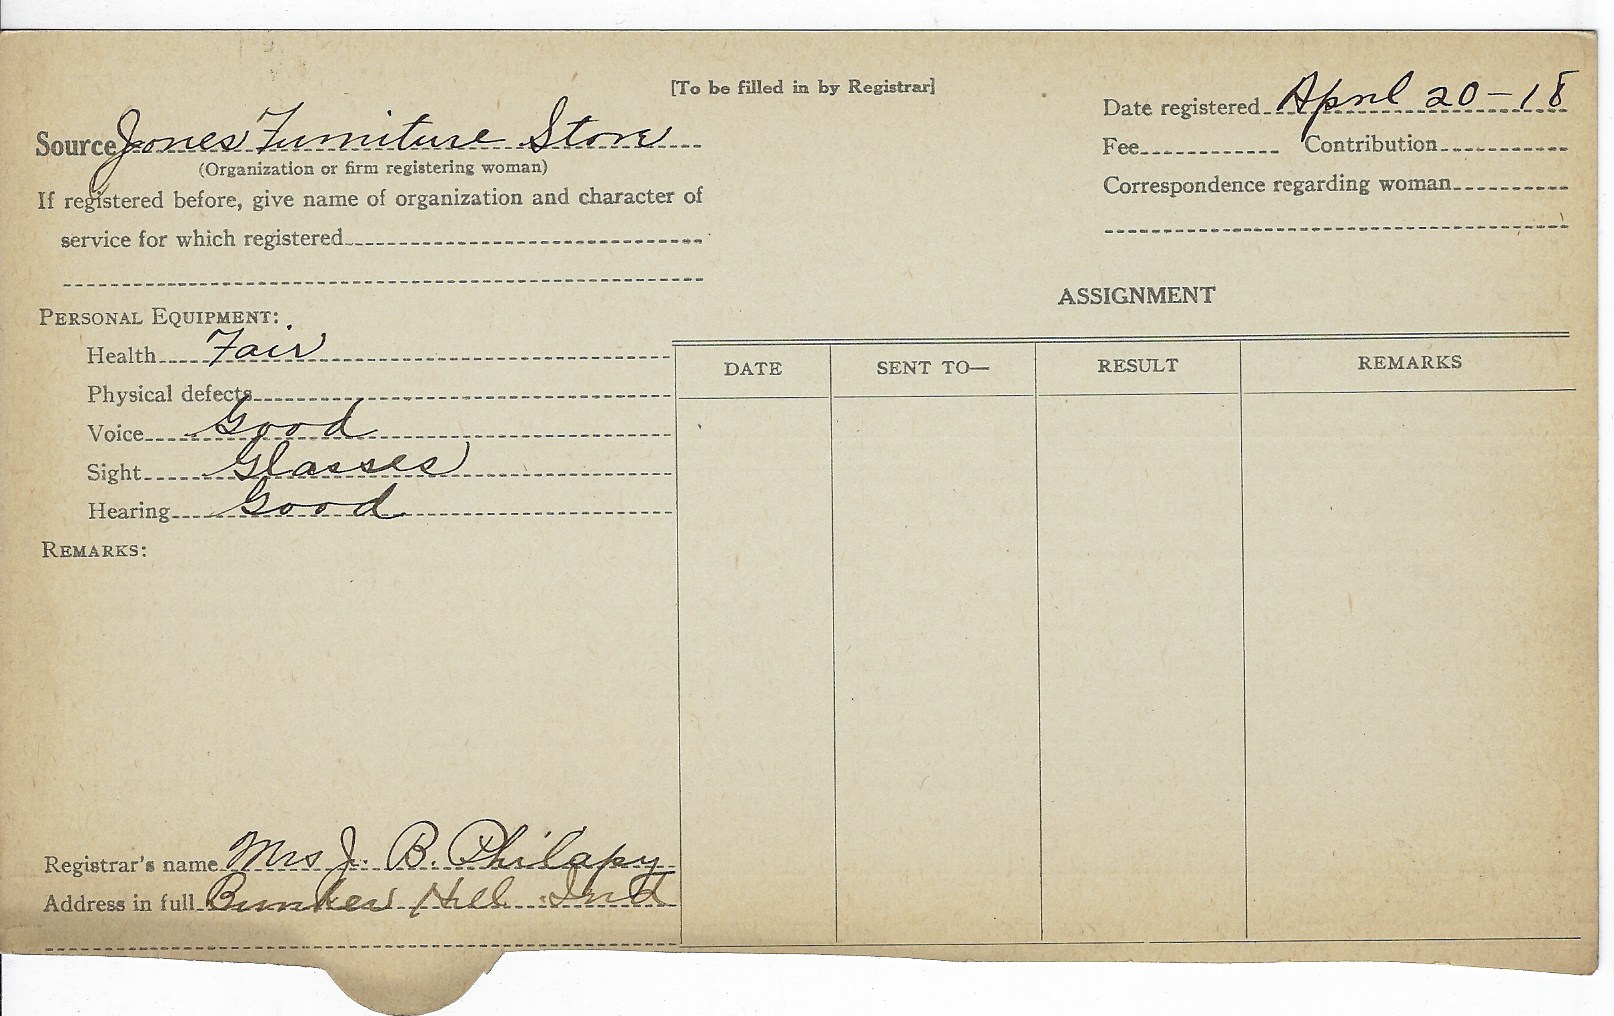 [To be filled in by Registrar]
Source Jones Furniture Store
(Organization or firm registering woman)
If registered before, give name of organization and character of
service for which registered
Date registered April 20-18
Fee Contribution
Correspondence regarding woman
PERSONAL EQUIPMENT:
Health Fair
Physical defects
Voice Good
Sight Glasses
Hearing Good
REMARKS:
Registrar's name Mrs J. B. Philapy
Address in full Bunker Hill Ind
ASSIGNMENT
DATE SENT TO— RESULT REMARKS